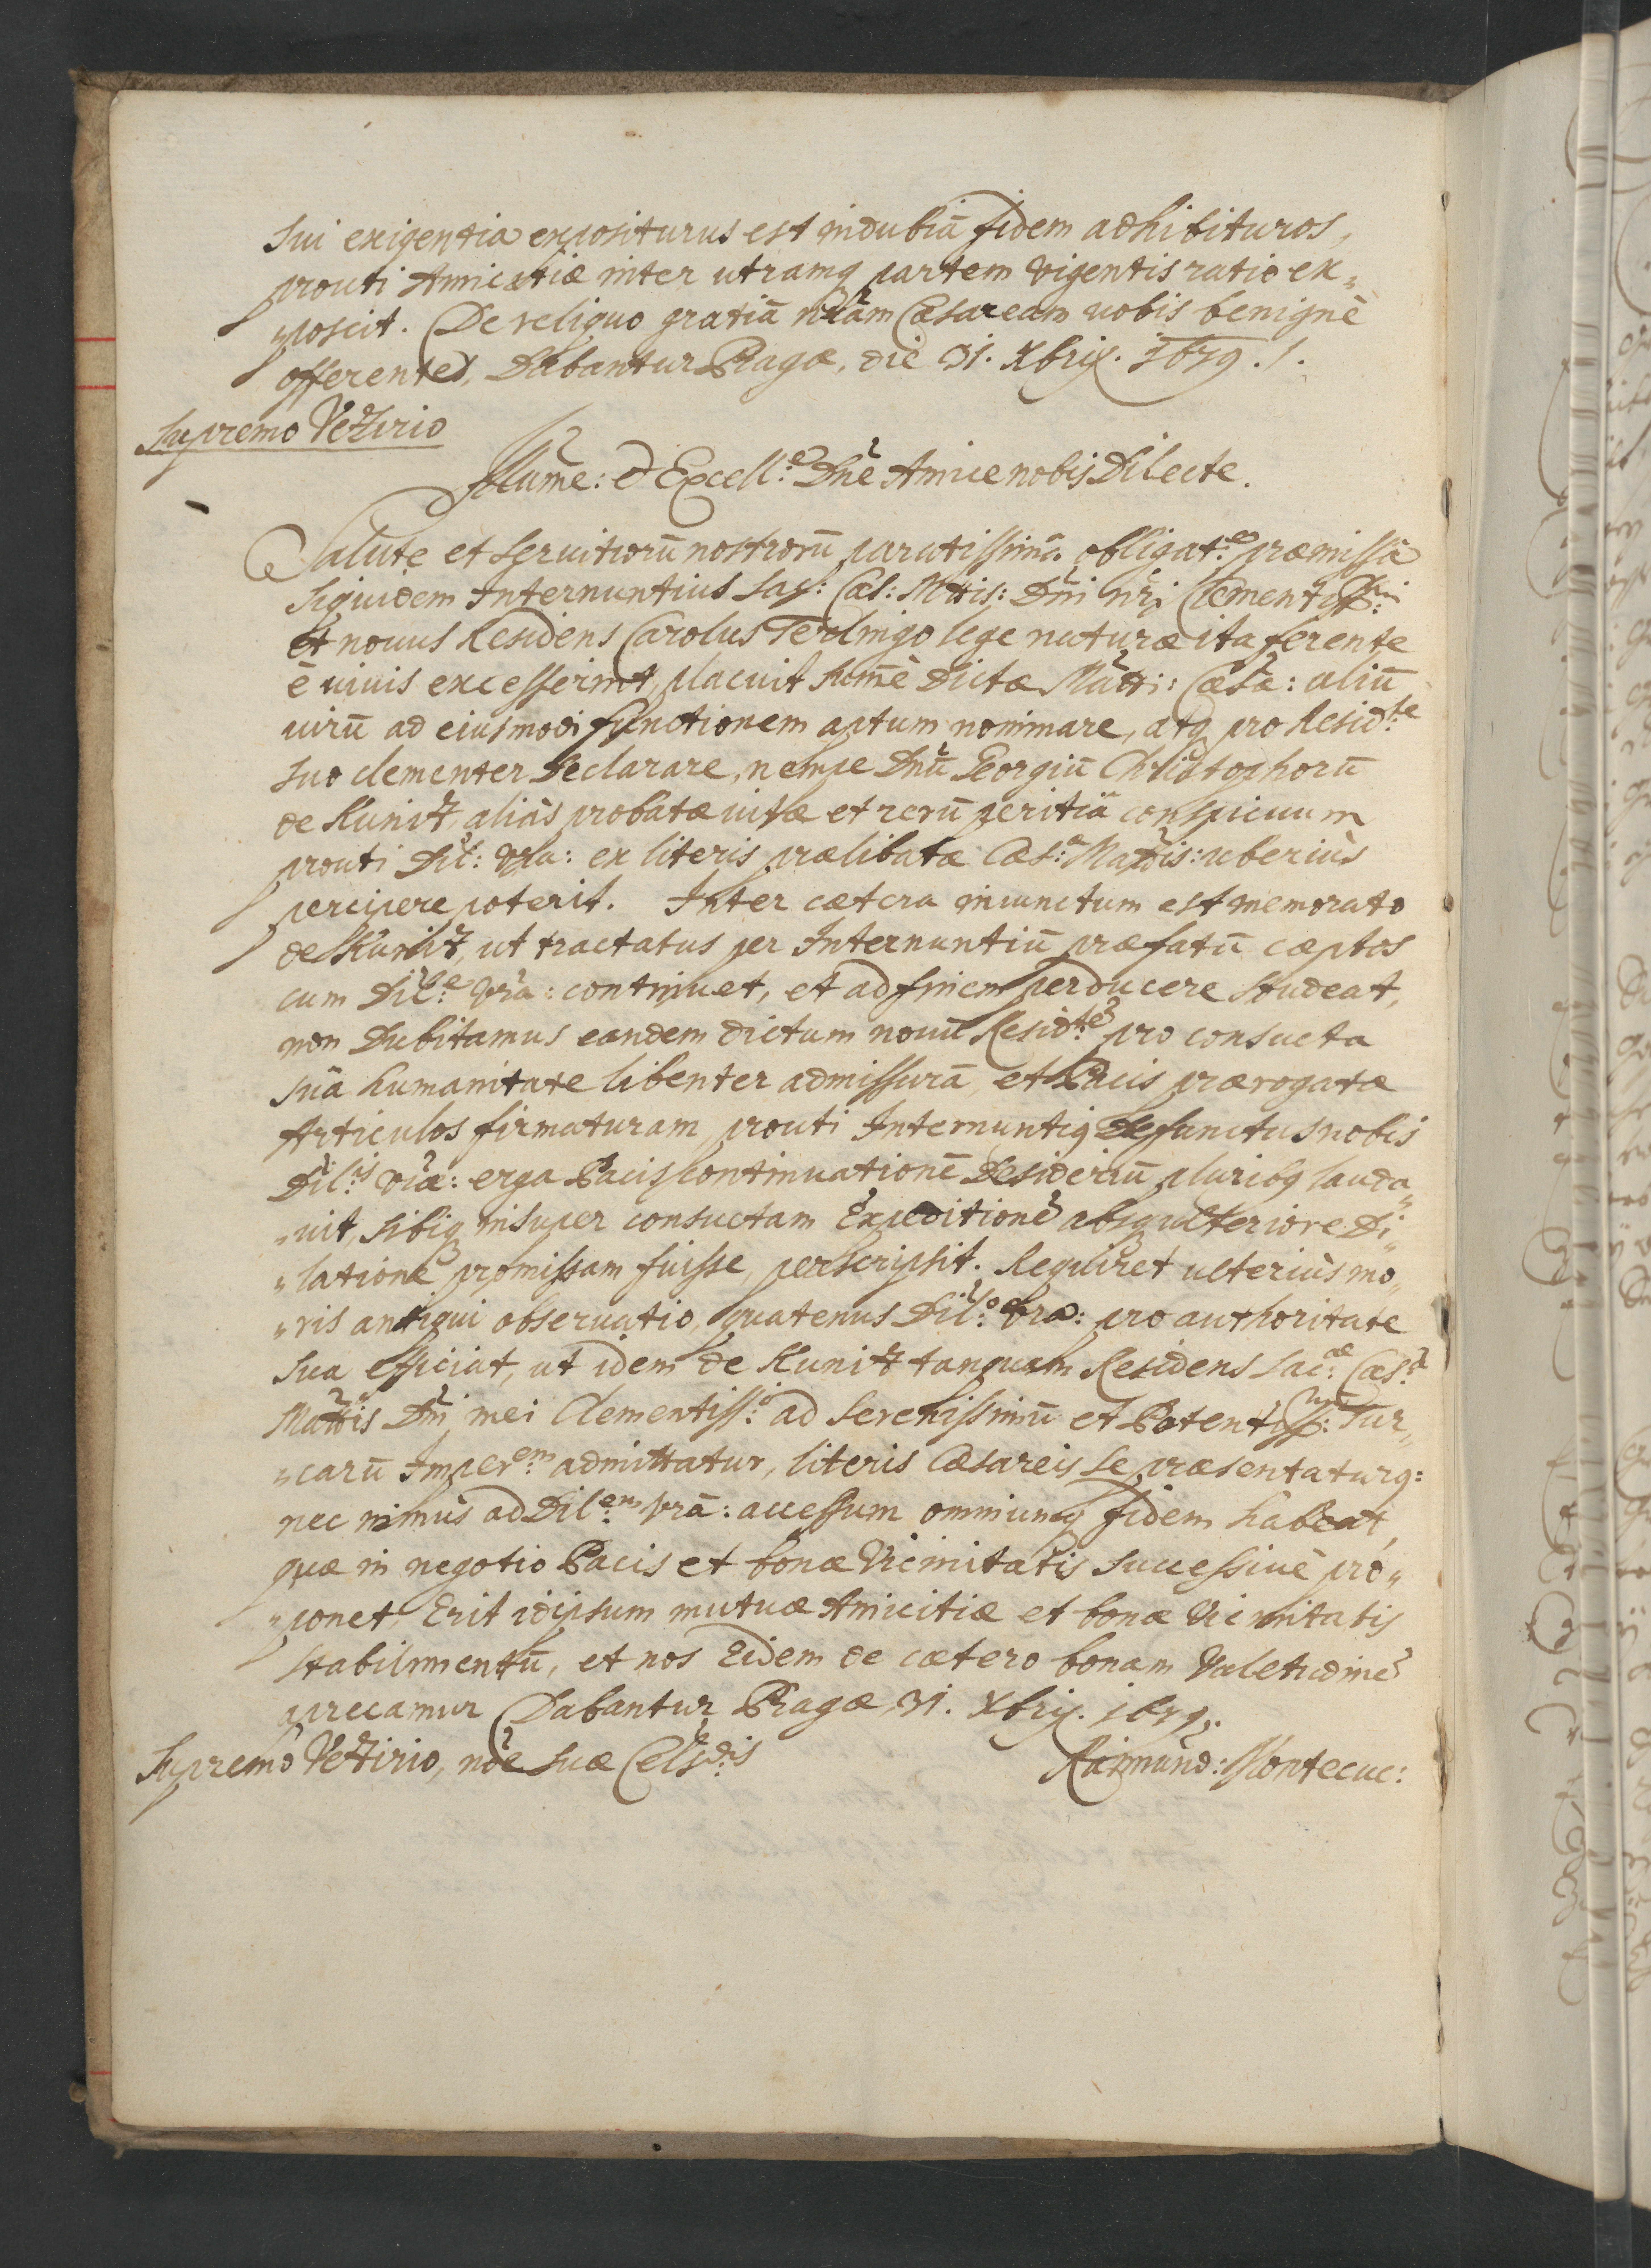 sui exigentia expositurus est indubiã fidem adhibituros,
prouti Amicitiæ inter utramq partem vigentis ratio ex„
„poscit. De reliquo gratiã nr̃am Cæsaream vobis benignè
offerentes, Dabantur Pragæ, die 31. Xbris. 1679. /.
Supremo Vezirio
Illume: & Excell:e Dñe Amice nobis Dilecte.
Salute et Servitiorũ nostrorũ paratissimã obligat:e præmissâ
Siquidem Internuntius Sac: Cæs: Mttis: Dñi nr̃i Clementissmi:
et novus Residens Carolus Terlingo lege naturæ ita ferente
è vivis excesserint, placuit home Dictæ Mátti: Cæsæ: aliũ
virũ ad eiusmodi functionem aptum nominare, atq pro Resid:te
suo clementer declarare, nempe Dñũ Georgiũ Christophorũ
de Kunitz, aliàs probatæ vitæ et rerũ peritiâ conspicuum
prouti Dil: Vr̃a: ex literis prælibatæ Cæs:æ Mattis: uberiùs
percipere poterit. Inter cætera iniunctum est memorato
de Kunitz, ut tractatus per Internuntiũ præfatũ cæptos
cum Dil:ne Vr̃a: continuet, et ad finem perducere studeat,
non Dubitamus eandem dictum novũ Resid:tẽ pro consueta
suâ humanitate libenter admissurã, et Pacis prærogatæ
Articulos firmaturam, prouti Internuntiq defunctus nobis
Dil:nis Vr̃æ: erga Pacis continuationẽ Desideriũ pluribq lauda„
„vit, sibiq insuper consuetam Expeditionẽ absq ulteriore Di„
„latione promissam fuisse, perscripsit. Requiret ulteriùs mo„
„ris antiqui observatio, quatenus Dil:o Vr̃a: pro authoritate
sua efficiat, ut idem de Kunitz tanquam Residens Sac:æ Cæs:æ
Mattis Dñi mei Clementiss:i ad Serenissimũ et Potentiss:um Tur„
„carũ Imper:em admittatur, literis Cæsareis se præsentaturq:
nec minùs ad Dil:em Vr̃ã: accessum omniumq fidem habeat,
quæ in negotio Pacis et bonæ Vicinitatis successivè pro„
„ponet, Erit idipsum mutuæ Amicitiæ et bonæ Vicinitatis
stabilimentũ, et nos Eidem de cætero bonam Valetudinẽ
precamur Dabantur Pragæ 31. Xbris. 1679.
Supremo Vezirio, nõe Suæ Cels:dis Raimund: Montecuc: